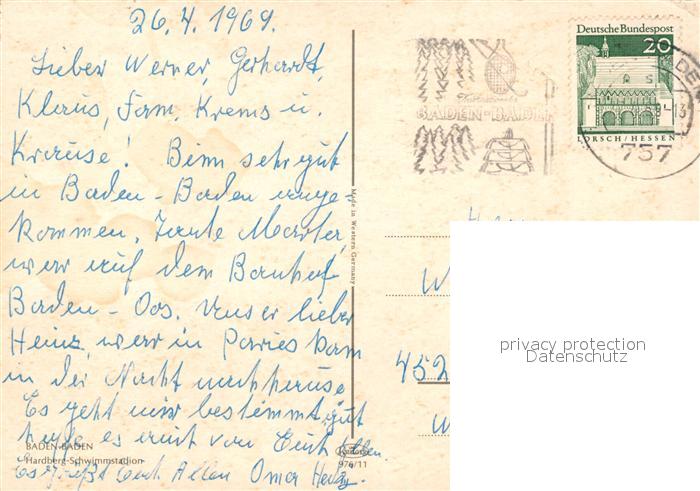 26.4.1969.
Lieber Werner, Gerhardt,
Klaus, Fam, Krems u.
Krause! Binn sehr gut
in Baden-Baden ange-
kommen, Tante Martel,
war auf dem Banhof
Baden-Oos. Unser lieber
Heinz, war in Paries kam
in der Nacht nachhause
Es geht mir bestimmt gut
hoffe es auch von Euch allen.
Es grüßt Euch Allen Oma
BADEN-BADEN
Hardberg-Schwimmstadion
Made in Western Germany
974/11
Deutsche Bundespost
20
LORSCH/HESSEN
BADEN-BADEN
757
452
privacy protection
Datenschutz